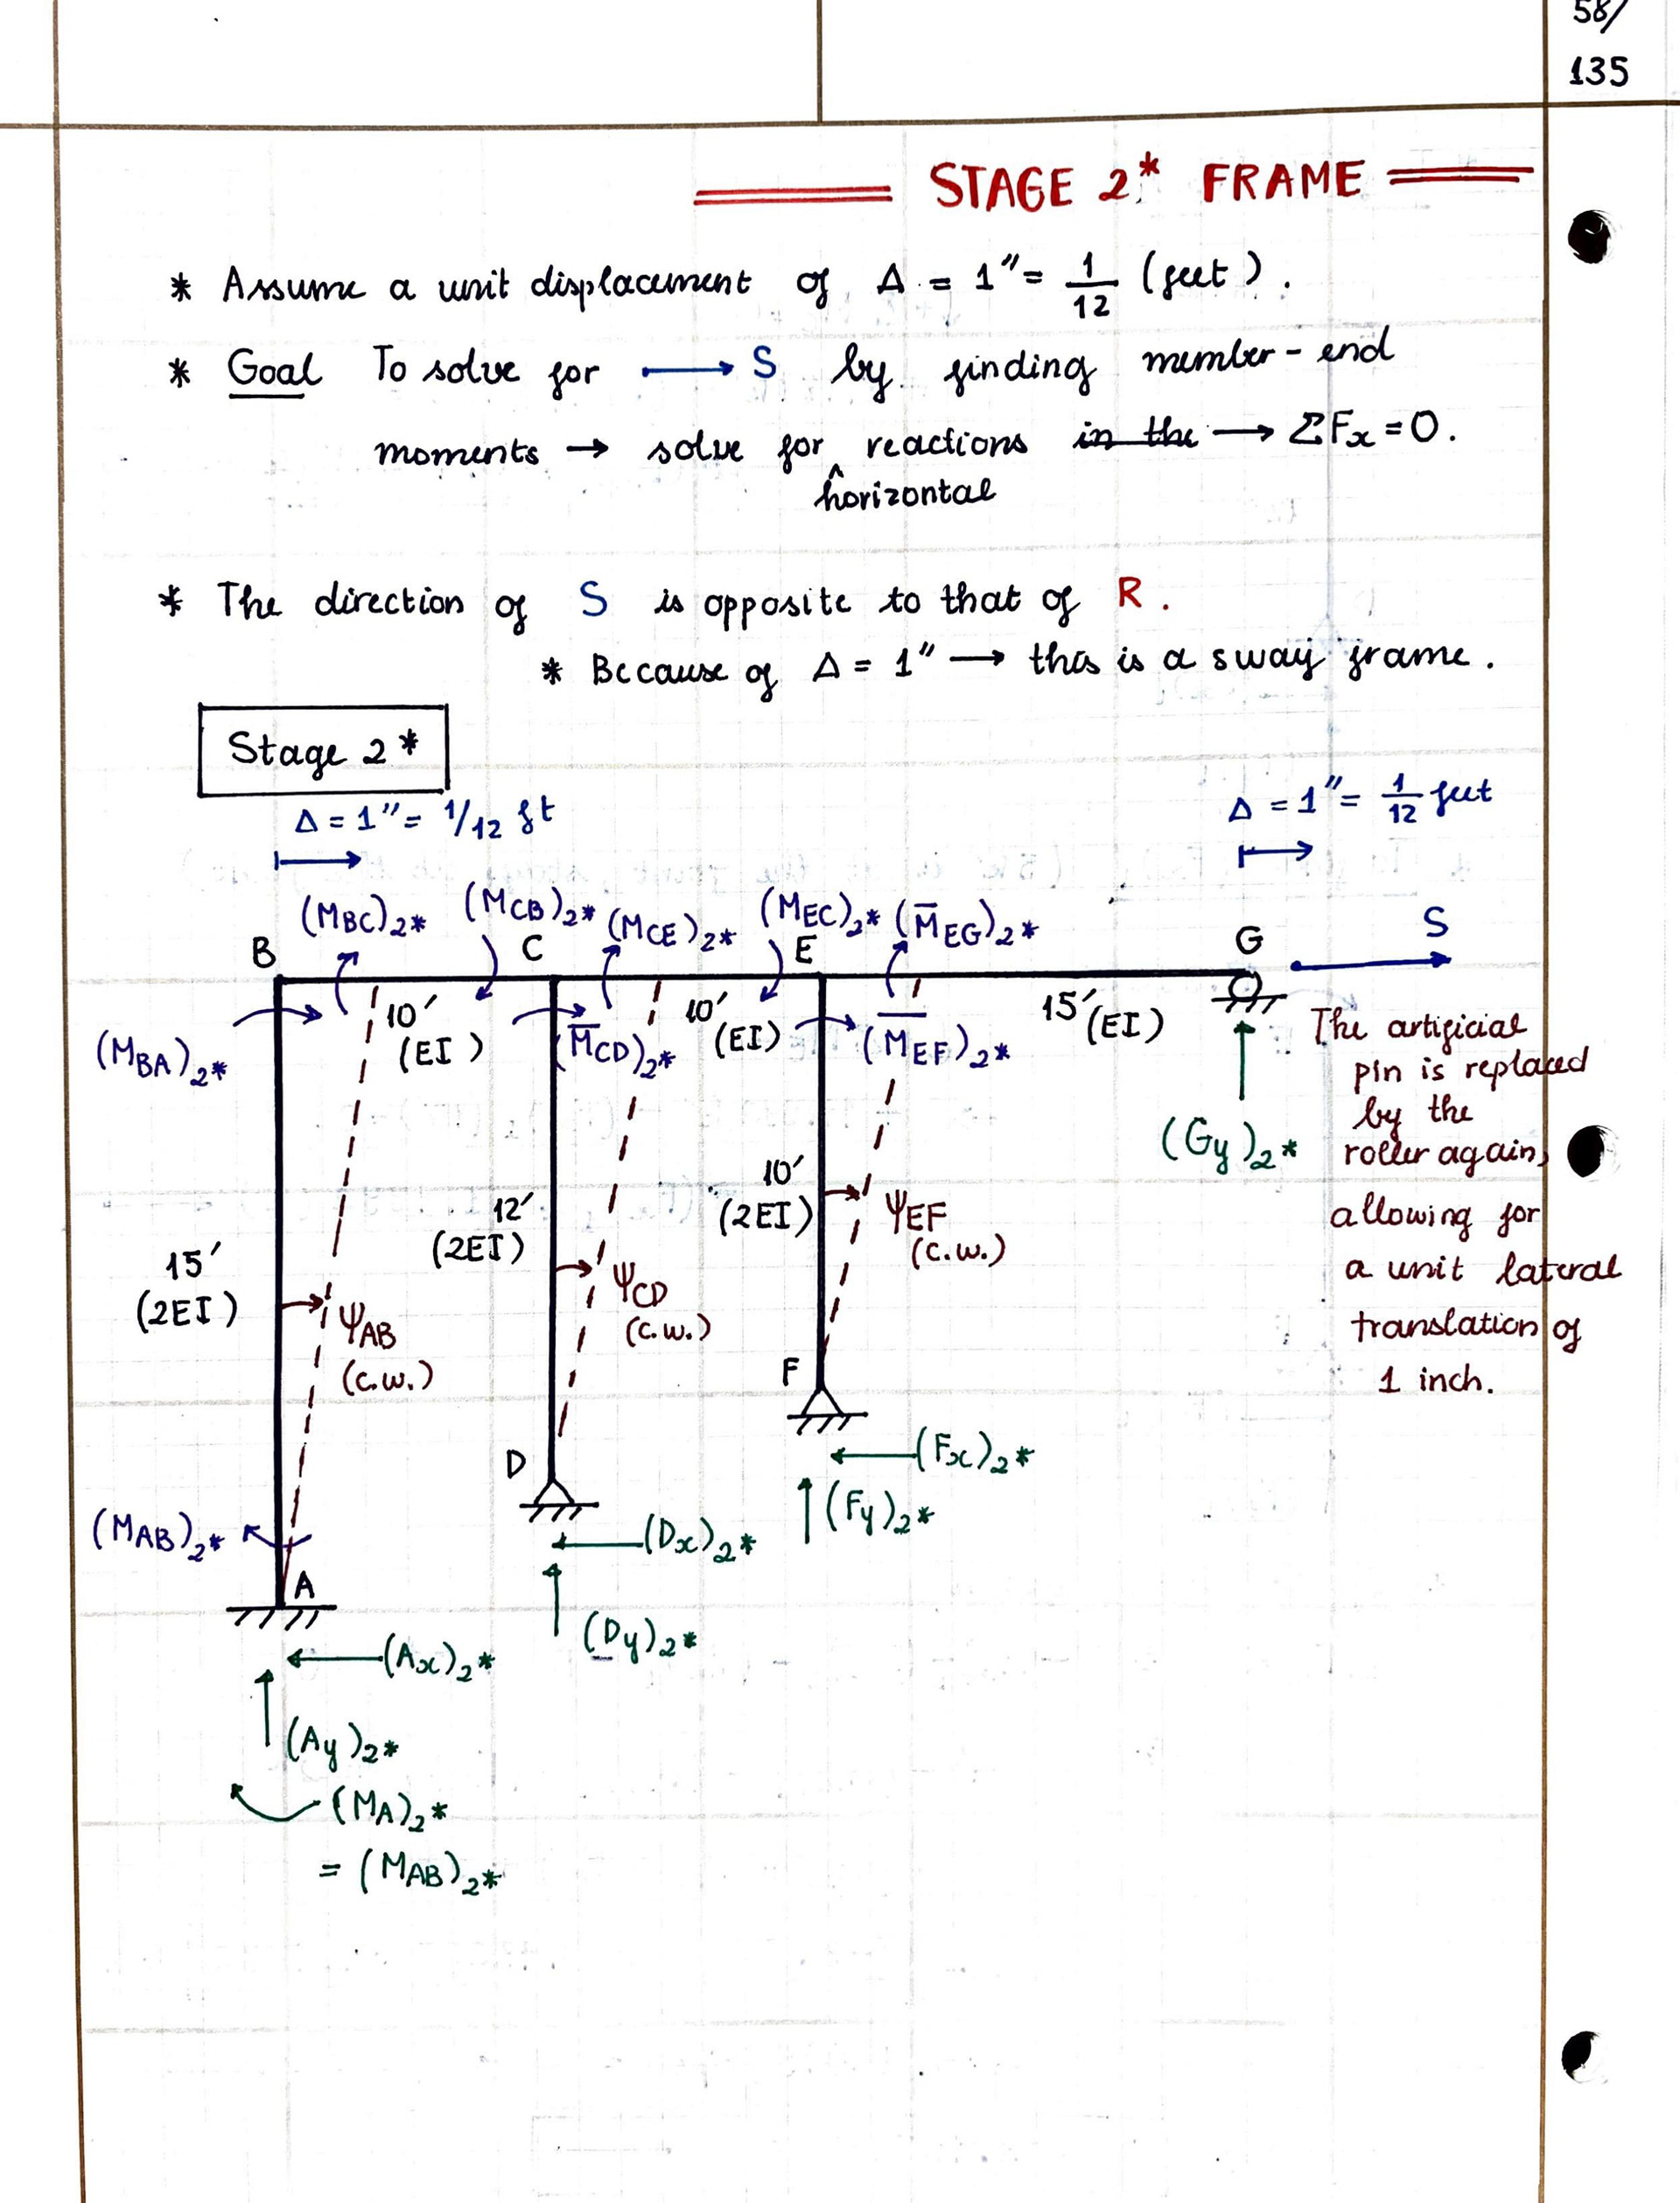 58/
135
STAGE 2* FRAME
* Assume a unit displacement of Δ = 1" = 1/12 (feet).
* Goal To solve for → S by finding member-end
moments → solve for reactions in the → ΣFx = 0.
horizontal
* The direction of S is opposite to that of R.
* Because of Δ = 1" → this is a sway frame.
Stage 2*
Δ = 1" = 1/12 ft
Δ = 1" = 1/12 feet
(MBC)2* (MCB)2* (MCE)2* (MEC)2* (M̅EG)2*
B C E G S
(MBA)2* 10' (EI) (M̅CD)2* 10' (EI) (M̅EF)2* 15' (EI)
The artificial
pin is replaced
by the
roller again,
allowing for
a unit lateral
translation of
1 inch.
(Gy)2*
15'
(2EI)
ΨAB
(c.w.)
12'
(2EI)
ΨCD
(c.w.)
10'
(2EI)
ΨEF
(c.w.)
F
(Fx)2*
(Fy)2*
D
(Dx)2*
(Dy)2*
(MAB)2*
A
(Ax)2*
(Ay)2*
(MA)2*
= (MAB)2*